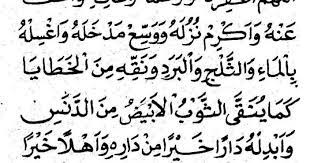 عَنْهُ وَاَكْرِمْ نُزُلَهُ وَوَسِّعْ مَدْخَلَهُ وَاغْسِلْهُ
بِالْمَاءِ وَالثَّلْجِ وَالْبَرَدِ وَنَقِّهِ مِنَ الْخَطَايَا
كَمَا يُنَقَّى الثَّوْبُ الْاَبْيَضُ مِنَ الدَّنَسِ
وَاَبْدِلْهُ دَارًا خَيْرًا مِنْ دَارِهِ وَاَهْلًا خَيْرًا